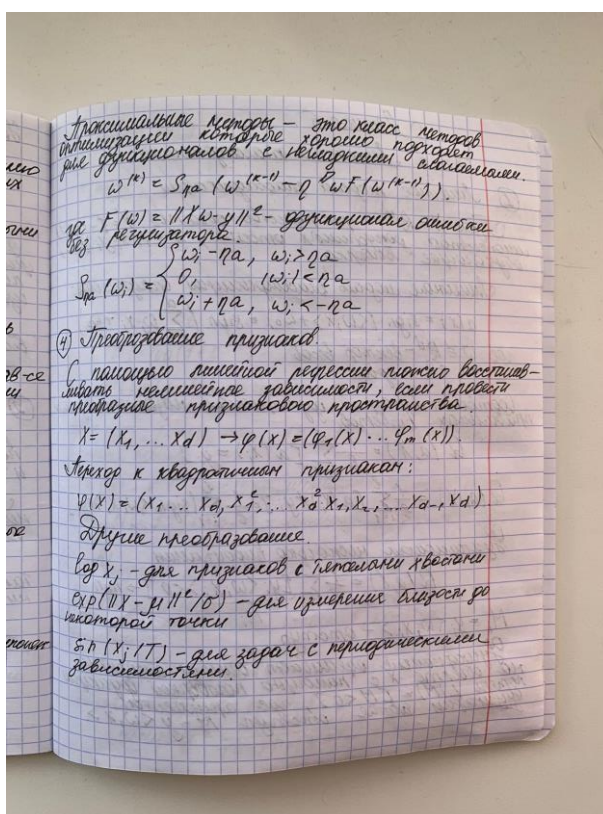 Проксимальные методы – это класс методов
оптимизации которые хорошо подходят
для функционалов с негладкими слагаемами.
ω^(k) = S_ηa (ω^(k-1) - η ∇_ω F(ω^(k-1))).
где F(ω) = ||Xω-y||² - функционал ошибки
без регулизатора.
S_ηa (ω_i) = { ω_i - ηa, ω_i > ηa
0, |ω_i| < ηa
ω_i + ηa, ω_i < -ηa
④ Преобрзование признаков.
С помощью линейной регрессии можно восстанав-
ливать нелинейное зависимости, если провести
преобразние признакового пространства.
X = (x_1, ... x_d) → φ(x) = (φ_1(x) ... φ_m(x)).
Переход к квадратичным признакам:
φ(x) = (x_1 ... x_d, x_1², ... x_d² x_1, x_2, ... x_d-, x_d)
Другие преобразование.
log x_j - для признаков с тяжелыми хвостами
exp(||X-μ||²/σ) - для измерения близости до
некоторой точки
sin(x_j/T) - для задач с периодическими
зависимостями.